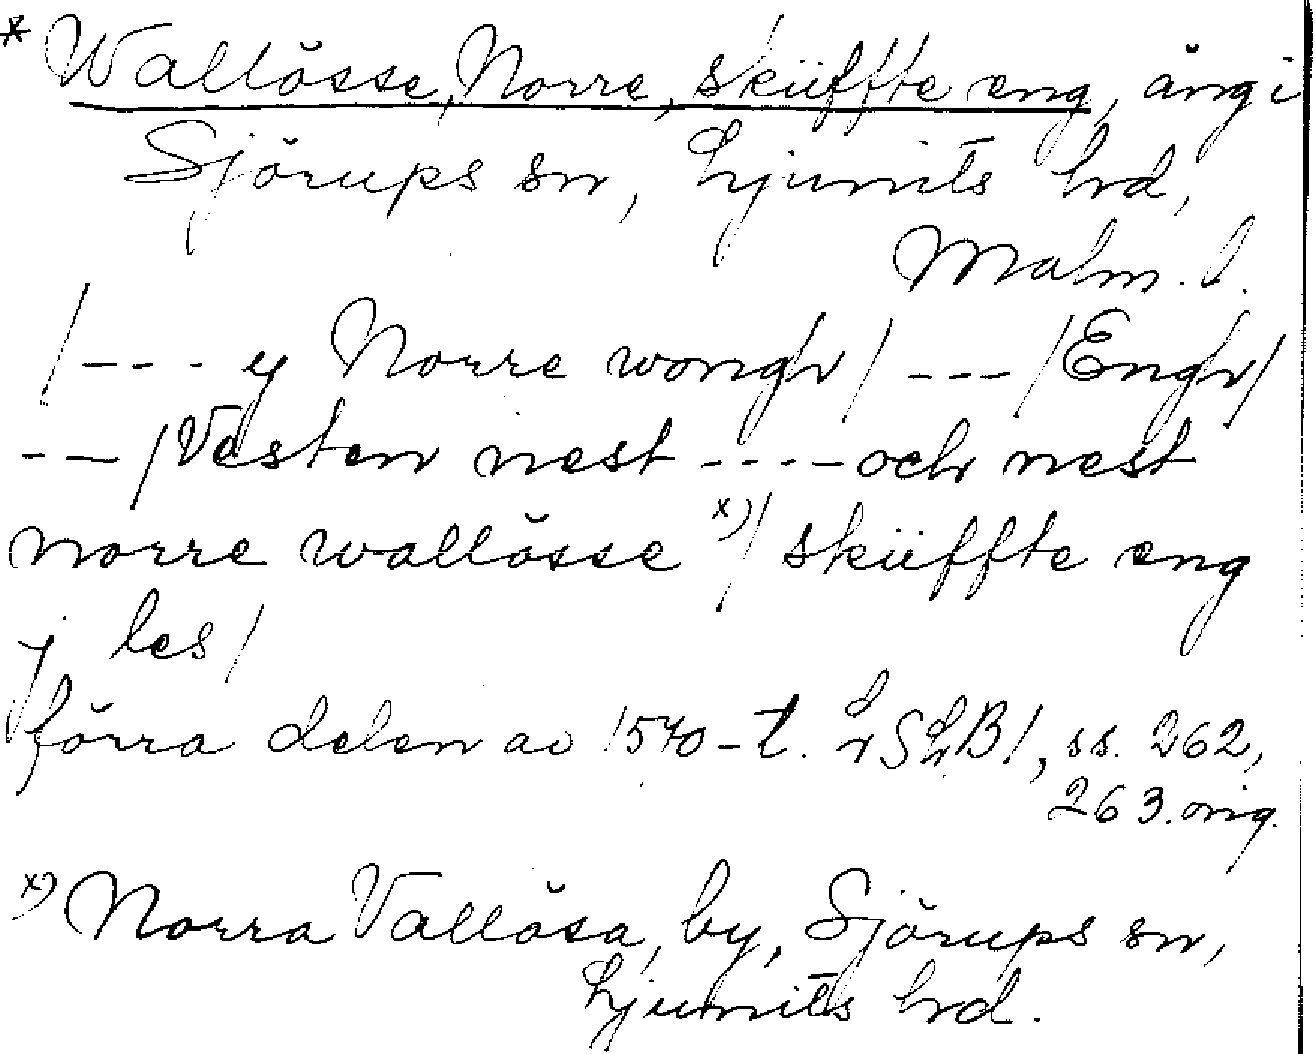 * Wallösse, Norre, skiiffte eng, äng i
Sjörups sn, Ljunits hrd,
Malm. l.
/--- y Norre wongh/ ---/Engh/
---/Vesten nest ----och nest
norre wallösse x)/ skiiffte eng
j les/
förra delen av 1570-t. LrSkB1, ss. 262,
263. orig.
x) Norra Vallösa, by, Sjörups sn,
Ljunits hrd.